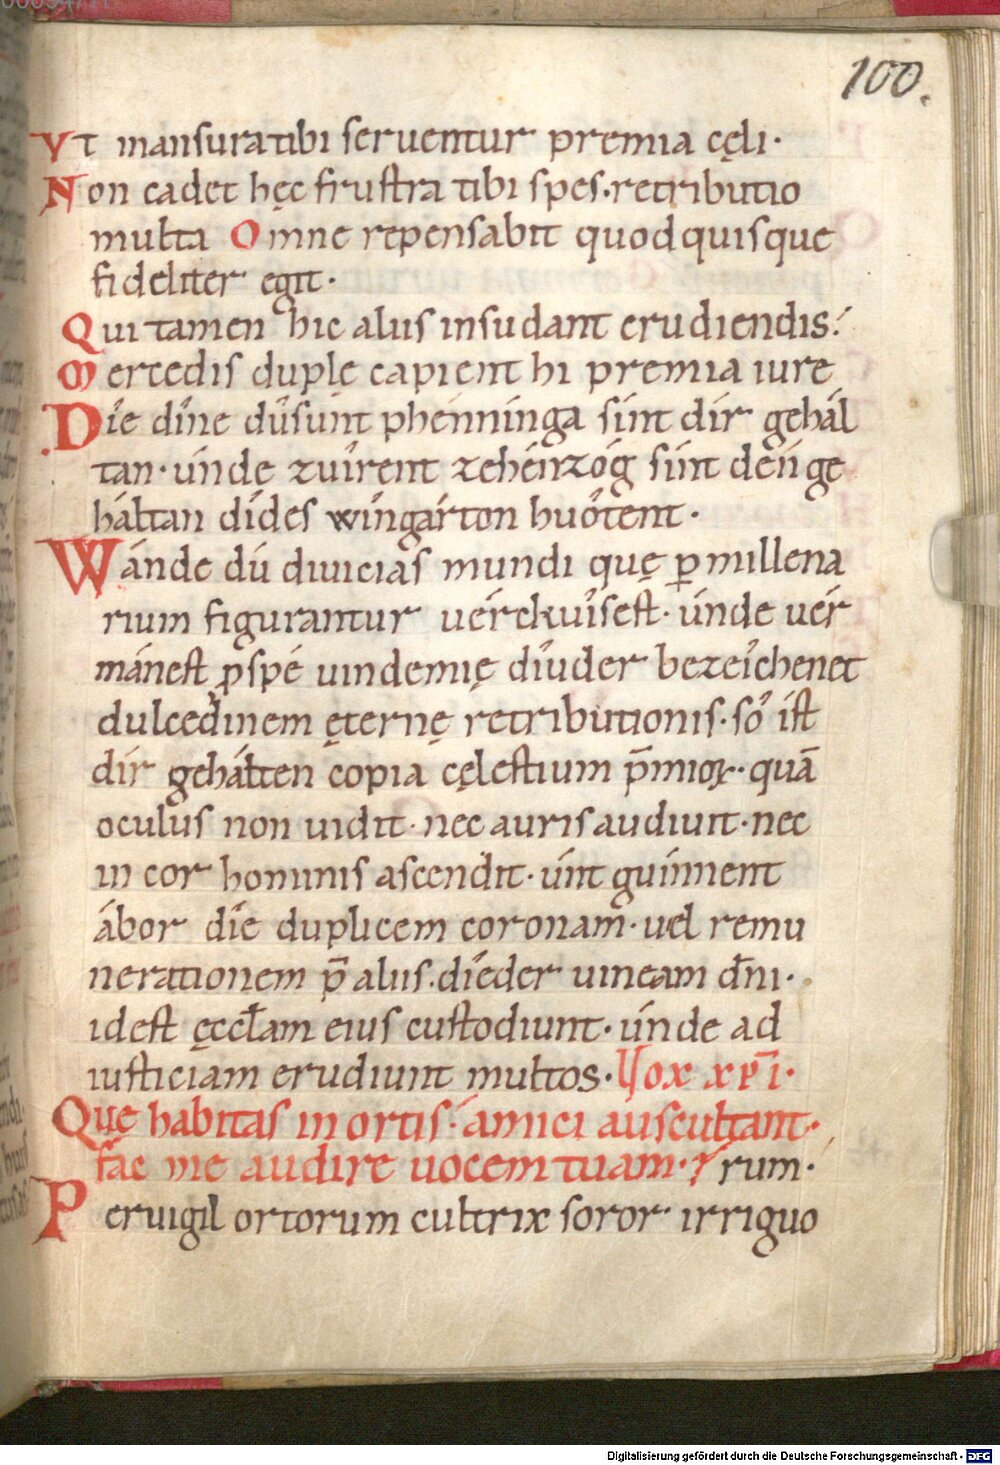 100.
Vt mansura tibi seruentur premia cęli·
Non cadet hęc frustra tibi spes·retributio
multa Omne repensabit quod quisque
fideliter egit·
Qui tamen hic aliis insudant erudiendis:
Mercedis duplę capient hi premia iure
Dîe dîne dûsunt phenninga sint dir gehál
tan· únde zuîrent zehénzóg sint den ge
háltan dídes wíngárton huôtent·
Wánde dú diuicias mundi quę p̱ millena
rium figurantur uérchuîsest· únde uer
mánest p̱ spé uindemię díuder bezeîchenet
dulcedinem ęternę retributionis· sô ist
dir gehálten copia cęlestium p̄mioꝝ· quā
oculus non uidit· nec auris audiuit· nec
in cor hominis ascendit· únt guinnent
ábor dîe duplicem coronam· uel remu
nerationem p̄ aliis· dîeder uineam dn̄i·
idest ęccl̄am eius custodiunt· únde ad
iusticiam erudiunt multos· Uox xp̄i·
Quę habitas in ortis· amici auscultant·
fác me audire uocem tuam· rum·
Peruigil ortorum cultrix soror irriguo
Digitalisierung gefördert durch die Deutsche Forschungsgemeinschaft · DFG